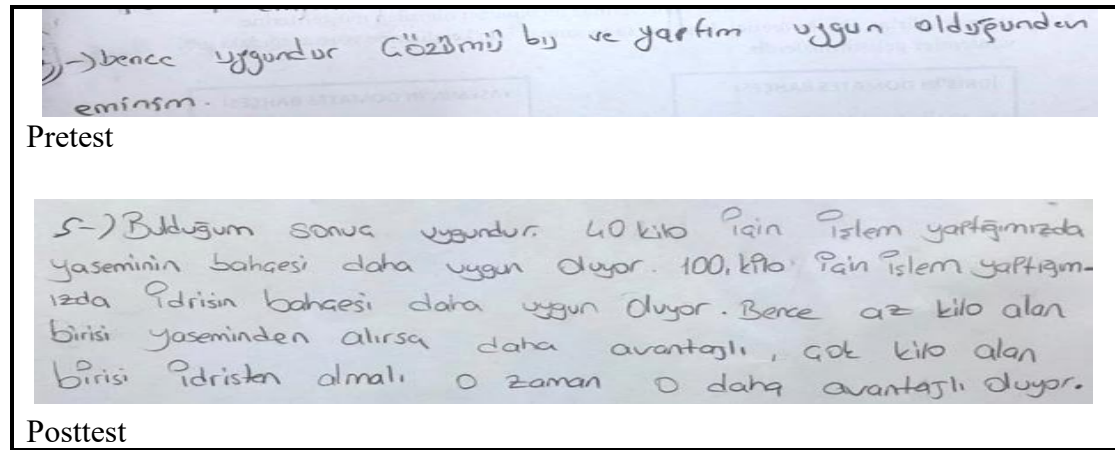 5)→bence uygundur Çözümüş bış ve yaptım uygun olduğunden
eminsm.
Pretest
5-) Bulduğum sonuç uygundur. 40 kilo için işlem yaptığımızda
yaseminin bahçesi daha uygun oluyor. 100, kilo için işlem yaptığım-
ızda idrisin bahçesi daha uygun oluyor. Bence az kilo alan
birisi yaseminden alırsa daha avantajlı, çok kilo alan
birisi idristen almalı o zaman o daha avantajlı oluyor.
Posttest